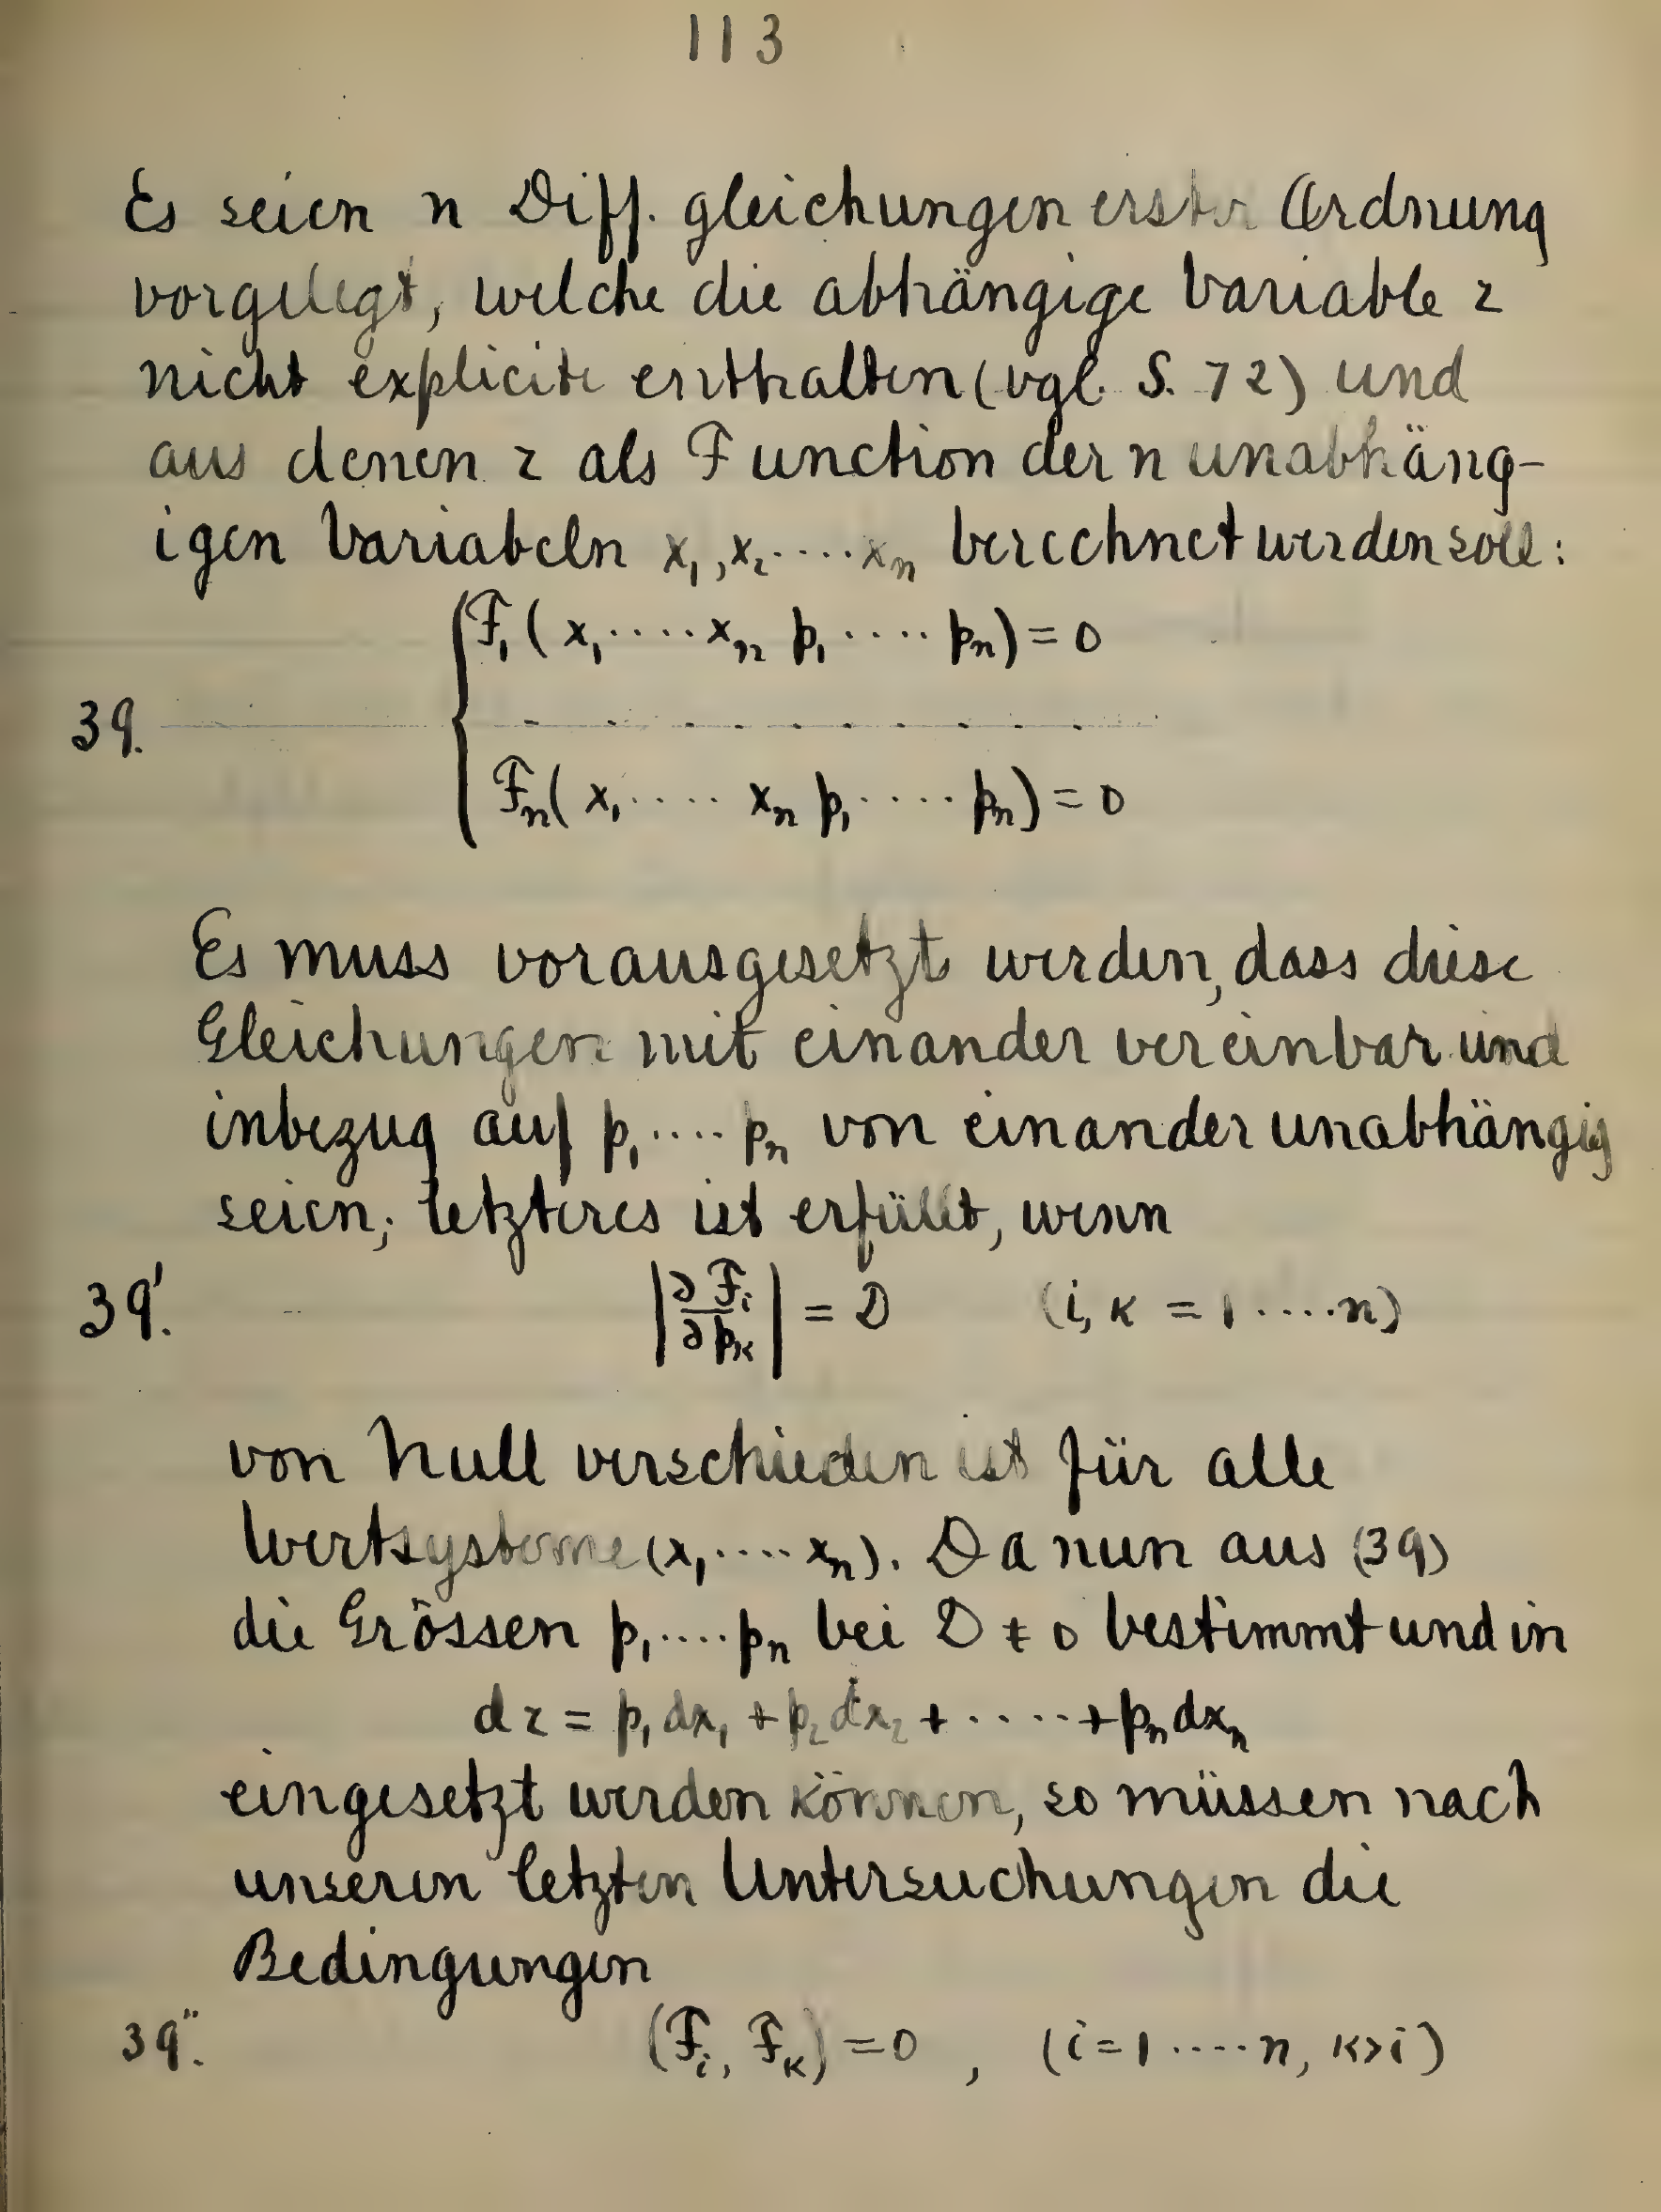 113
Es seien n Diff. gleichungen erster Ordnung
vorgelegt, welche die abhängige Variable z
nicht explicite enthalten (vgl. S. 72) und
aus denen z als Function der n unabhäng-
igen Variabeln x₁, x₂ ····· xₙ berechnet werden soll:
F₁ ( x₁ ····· xₙ p₁ ····· pₙ) = 0
39. - · · · · · · ·
Fₙ( x₁ ····· xₙ p₁ ····· pₙ) = 0
Es muss vorausgesetzt werden, dass diese
Gleichungen mit einander vereinbar und
inbezug auf p₁ ···· pₙ von einander unabhängig
seien; letzteres ist erfüllt, wenn
39'. |∂Fᵢ/∂pκ| = D (i, κ = 1 ····· n)
von Null verschieden ist für alle
Wertsysteme (x₁ ···· xₙ). Da nun aus (39)
die Grössen p₁ ···· pₙ bei D ≠ 0 bestimmt und in
dz = p₁dx₁ + p₂dx₂ + ····· + pₙdxₙ
eingesetzt werden können, so müssen nach
unseren letzten Untersuchungen die
Bedingungen
39''. (Fᵢ, Fκ) = 0 , (i = 1 ····· n, κ > i)